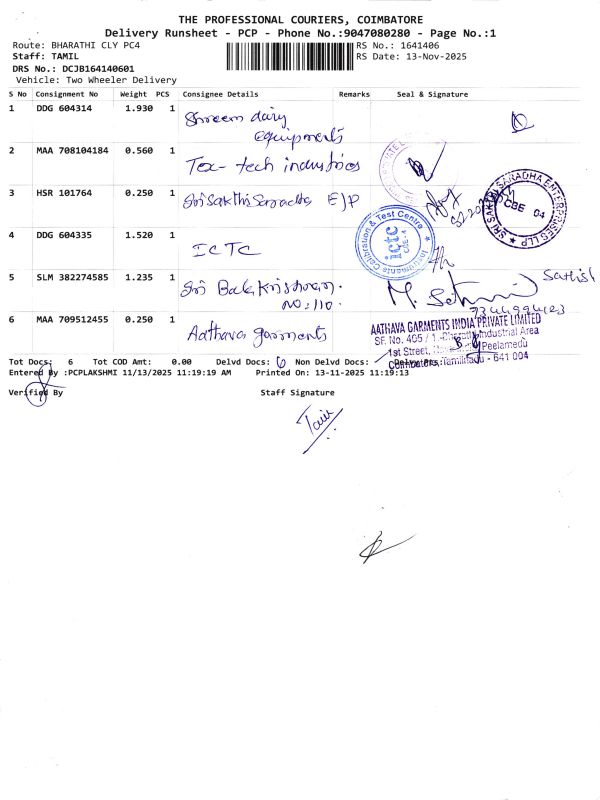 THE PROFESSIONAL COURIERS, COIMBATORE
Delivery Runsheet - PCP - Phone No.:9047080280 - Page No.:1
Route: BHARATHI CLY PC4
RS No.: 1641406
Staff: TAMIL
RS Date: 13-Nov-2025
DRS No.: DCJB164140601
Vehicle: Two Wheeler Delivery
S No Consignment No Weight PCS Consignee Details Remarks Seal & Signature
1 DDG 604314 1.930 1 Shreem dairy equipments
2 MAA 708104184 0.560 1 Tex-tech industries
3 HSR 101764 0.250 1 Sri Sakthi Saradha
SRI SAKTHI SARADHA ENTERPRISES LLP
CBE 04
4 DDG 604335 1.520 1 ICTC
Instruments Calibration & Test Centre
ictc
CBE-4
5 SLM 382274585 1.235 1 Sri Balakrishnan.
NO:110.
Sathish
6 MAA 709512455 0.250 1 Aathava garments
AATHAVA GARMENTS INDIA PRIVATE LIMITED
SF No. 405 / 1, Bharathi Industrial Area
1st Street, Peelamedu
Coimbatore, Tamilnadu - 641 004
Tot Docs: 6 Tot COD Amt: 0.00 Delvd Docs: 6 Non Delvd Docs:
Entered By :PCPLAKSHMI 11/13/2025 11:19:19 AM Printed On: 13-11-2025 11:19:13
Verified By Staff Signature